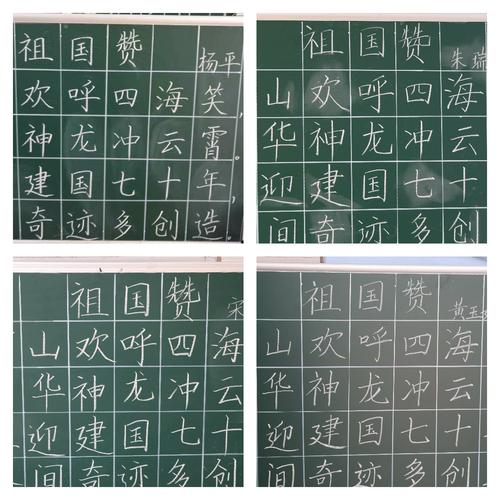 祖国赞 杨平
欢呼四海笑，
神龙冲云霄。
建国七十年，
奇迹多创造。
祖国赞 朱瑞
山欢呼四海
华神龙冲云
迎建国七十
间奇迹多创
祖国赞 宋
山欢呼四海
华神龙冲云
迎建国七十
间奇迹多创
祖国赞 黄玉
山欢呼四海
华神龙冲云
迎建国七十
间奇迹多创